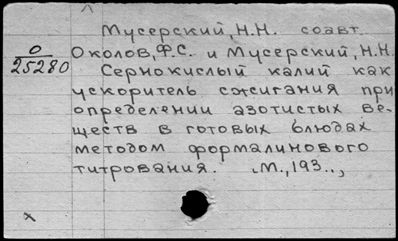 Мусерский, Н.Н. соавт.
О
25280
Околов, Ф.С. и Мусерский, Н.Н.
Сернокислый калий как
ускоритель сжигания при
определении азотистых ве-
ществ в готовых блюдах
методом формалинового
титрования. М., 193..,
х